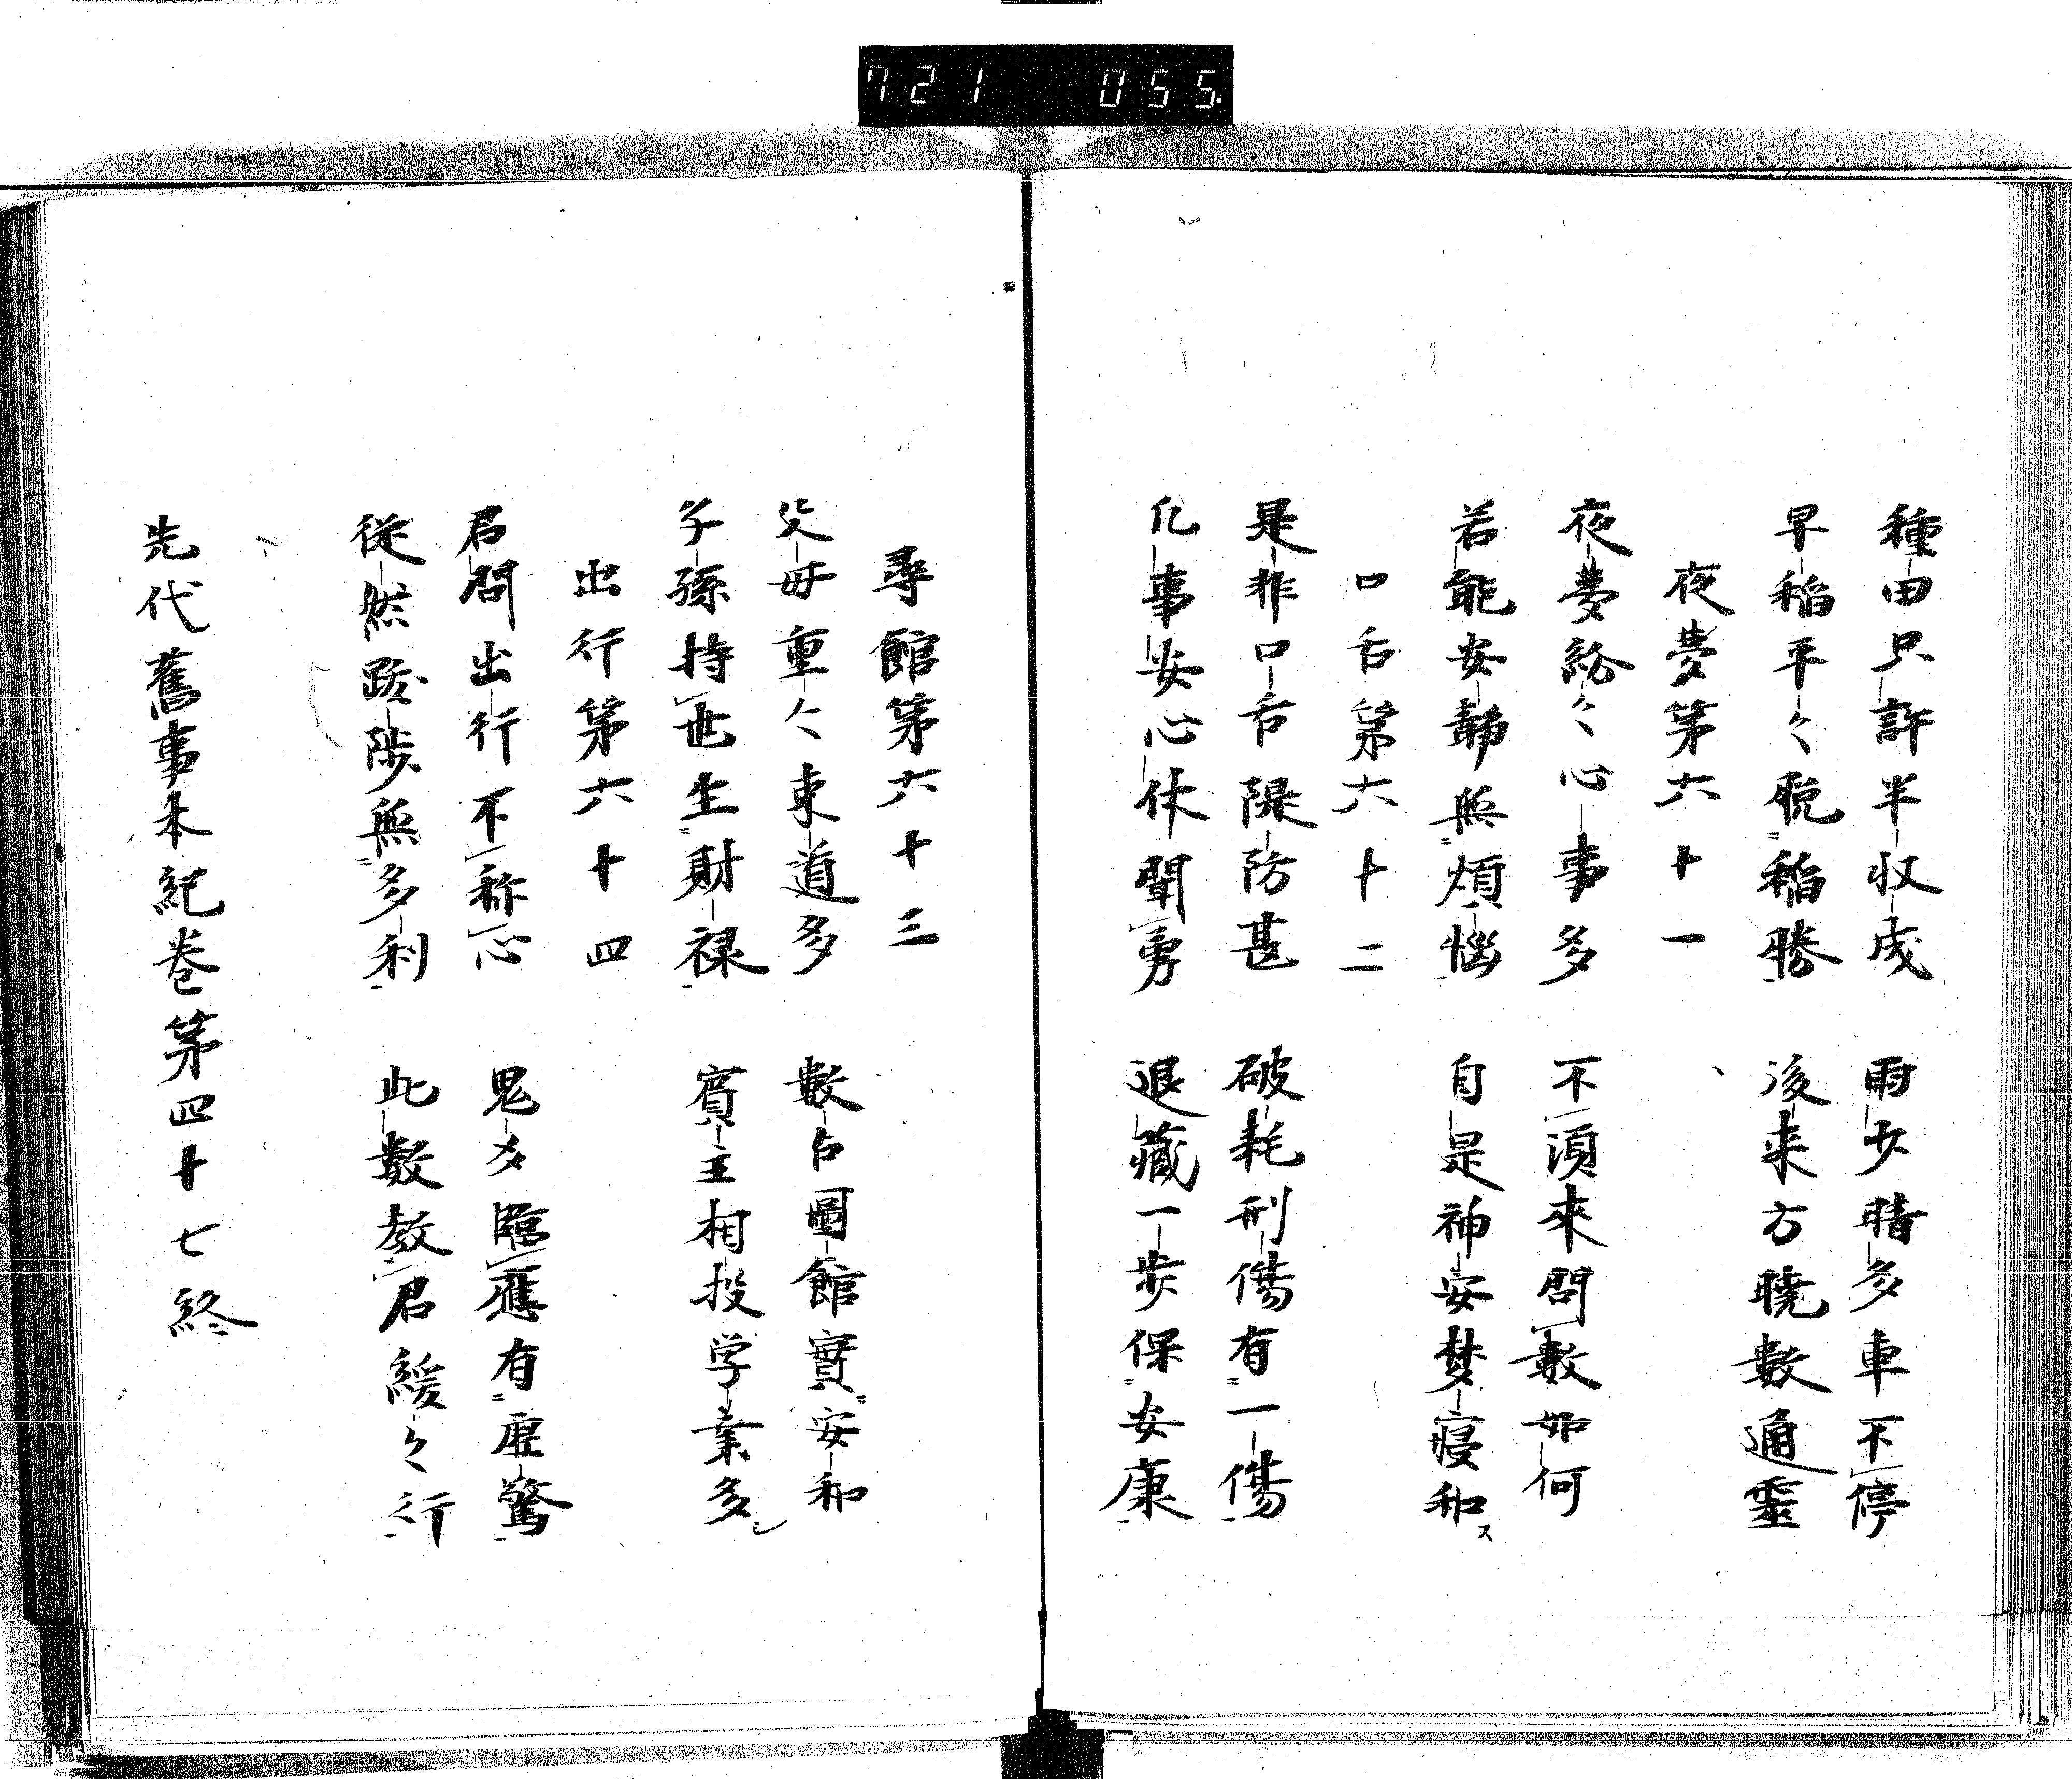 721 055.
種田只許半収成 雨少晴多車不停
早稲平々晩稲勝 後来方暁数通霊
夜夢第六十一
夜夢紛々心事多 不須來問数如何
若能安静無煩悩 自是神安梦寝和ス
口舌第六十二
是非口舌隄防甚 破耗刑傷有一傷
凡事安心休闘勇 退藏一歩保安康
尋館第六十三
父母重々束道多 數占圖館實安和
子孫持世生財禄 賓主相投学業多シ
出行第六十四
君問出行不称心 鬼爻臨應有虚驚
従然跋陟無多利 此數教君緩々行
先代舊事本紀巻第四十七終